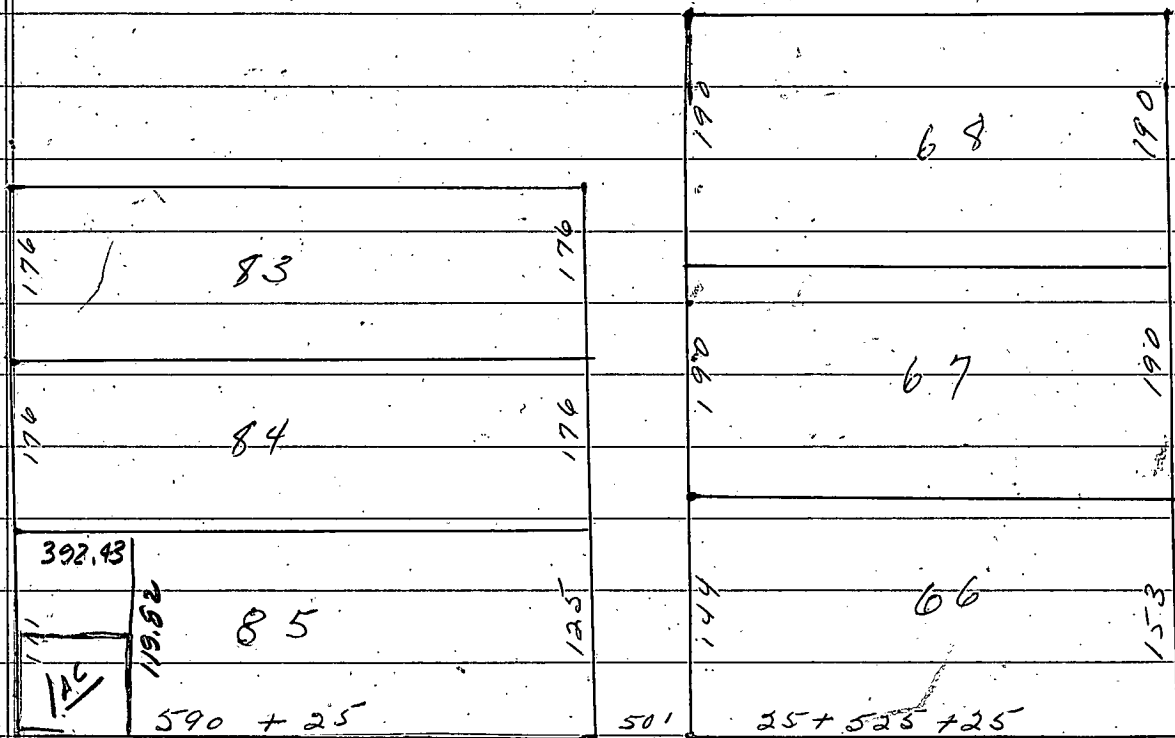 190 68 190
176 83 176
190 67 190
176 84 176
392.43
119.82 85 125
111
1 AC
144 66 153
590 + 25 50' 25 + 525 + 25